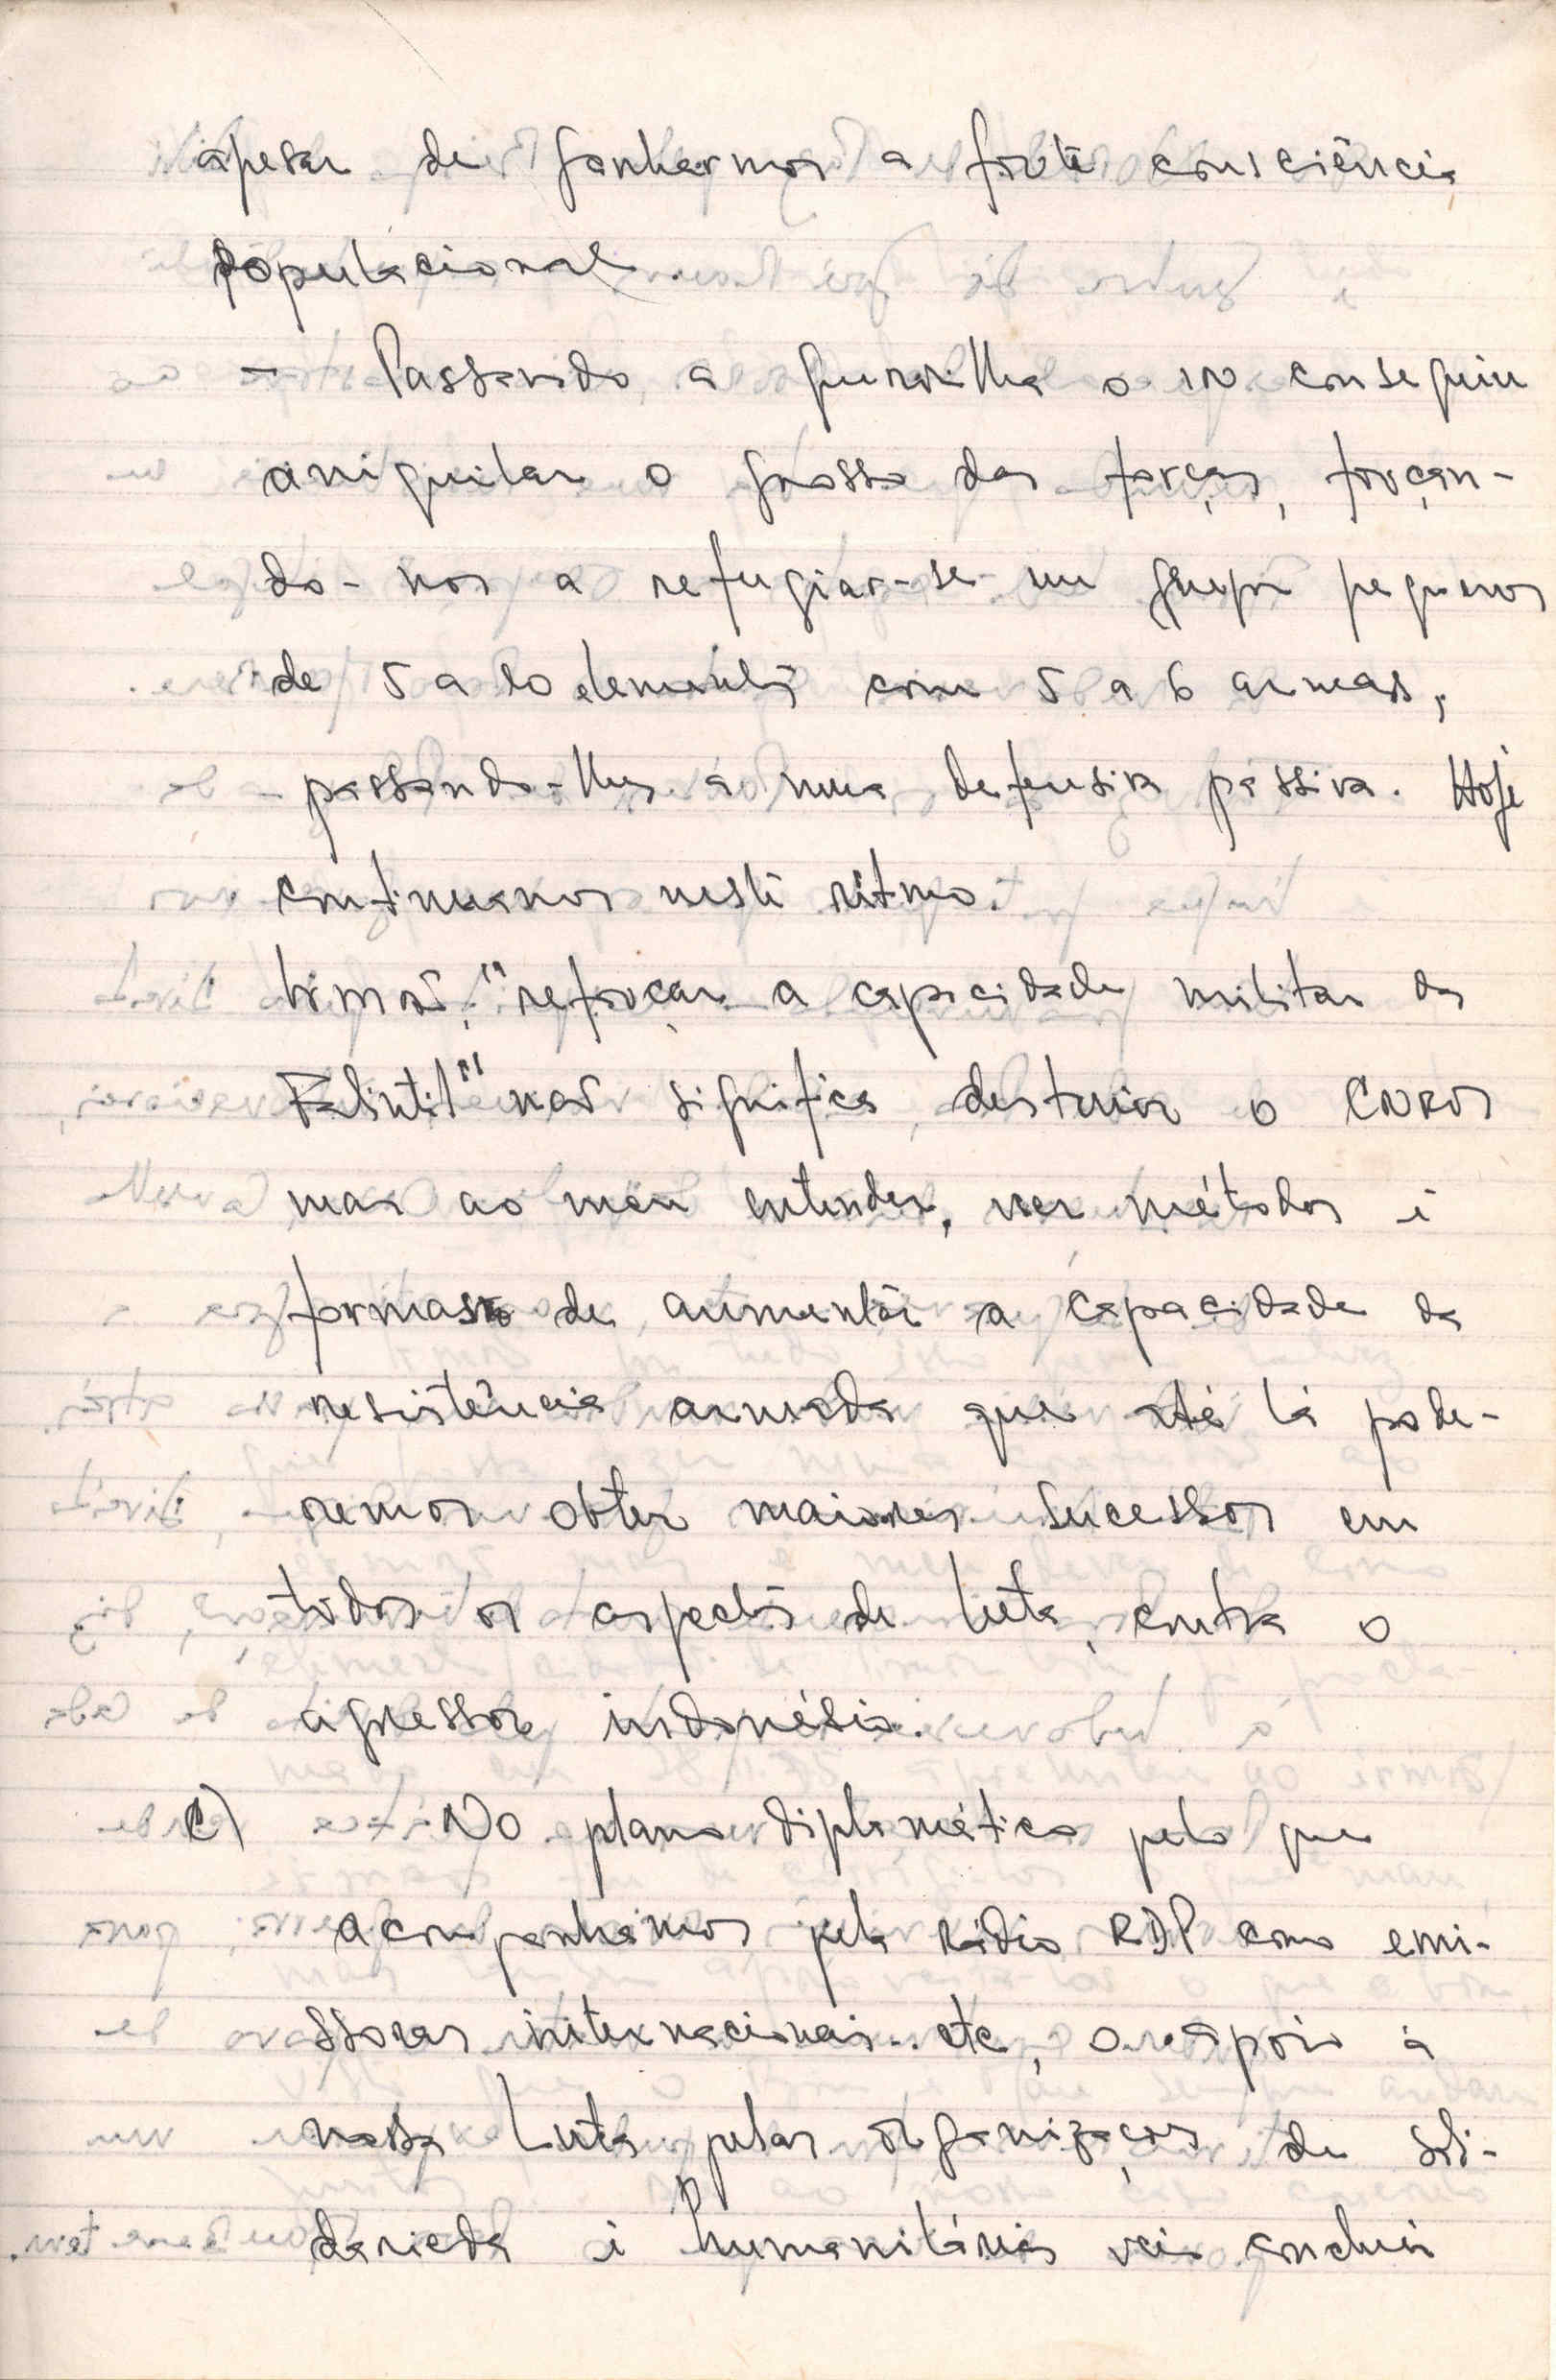 apesar de ganharmos a forte consciência
populacional.
- Passando a guerrilha o IN conseguiu
aniquilar o grosso das forças, forçan-
do-nos a refugiar-se em grupos pequenos
de 5 a 10 elementos com 5 a 6 armas,
passando-lhes a uma defensiva passiva. Hoje
continuamos neste ritmo.
Irmão, "reforçar a capacidade militar das
Falintil" não significa, destruir o CNRM
mas ao meu entender, ver métodos e
formas de aumentar a capacidade da
resistência armada que até lá pode-
remos obter maiores sucessos em
todos os aspectos de luta, contra o
agressor indonésio.
c) No plano diplomático pelo que
acompanhamos pela rádio RDP como emi-
ssoras internacionais.. etc, o apoio à
nossa Luta pelas organizações de soli-
darieda e humanitárias veio concluir